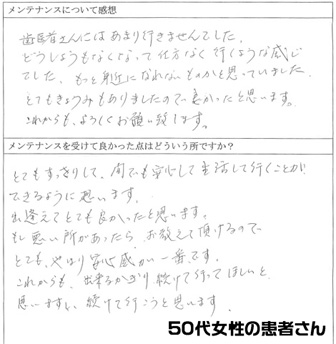 メンテナンスについて感想
歯医者さんにはあまり行きませんでした。
どうしようもなくなって仕方なく行くような感じ
でした。もっと身近になれないものかと思っていました。
とてもきょうみもありましたので良かったと思います。
これからも、よろしくお願い致します。
メンテナンスを受けて良かった点はどういう所ですか?
とてもすっきりして、何でも安心して生活して行くことが
できるように思います。
出逢えてとても良かったと思います。
もし悪い所があったら、お教えて頂けるので
とても、やはり安心感が一番です。
これからも、出来るかぎり続けて行ってほしいと
思いますし、続けて行こうと思います。
50代女性の患者さん